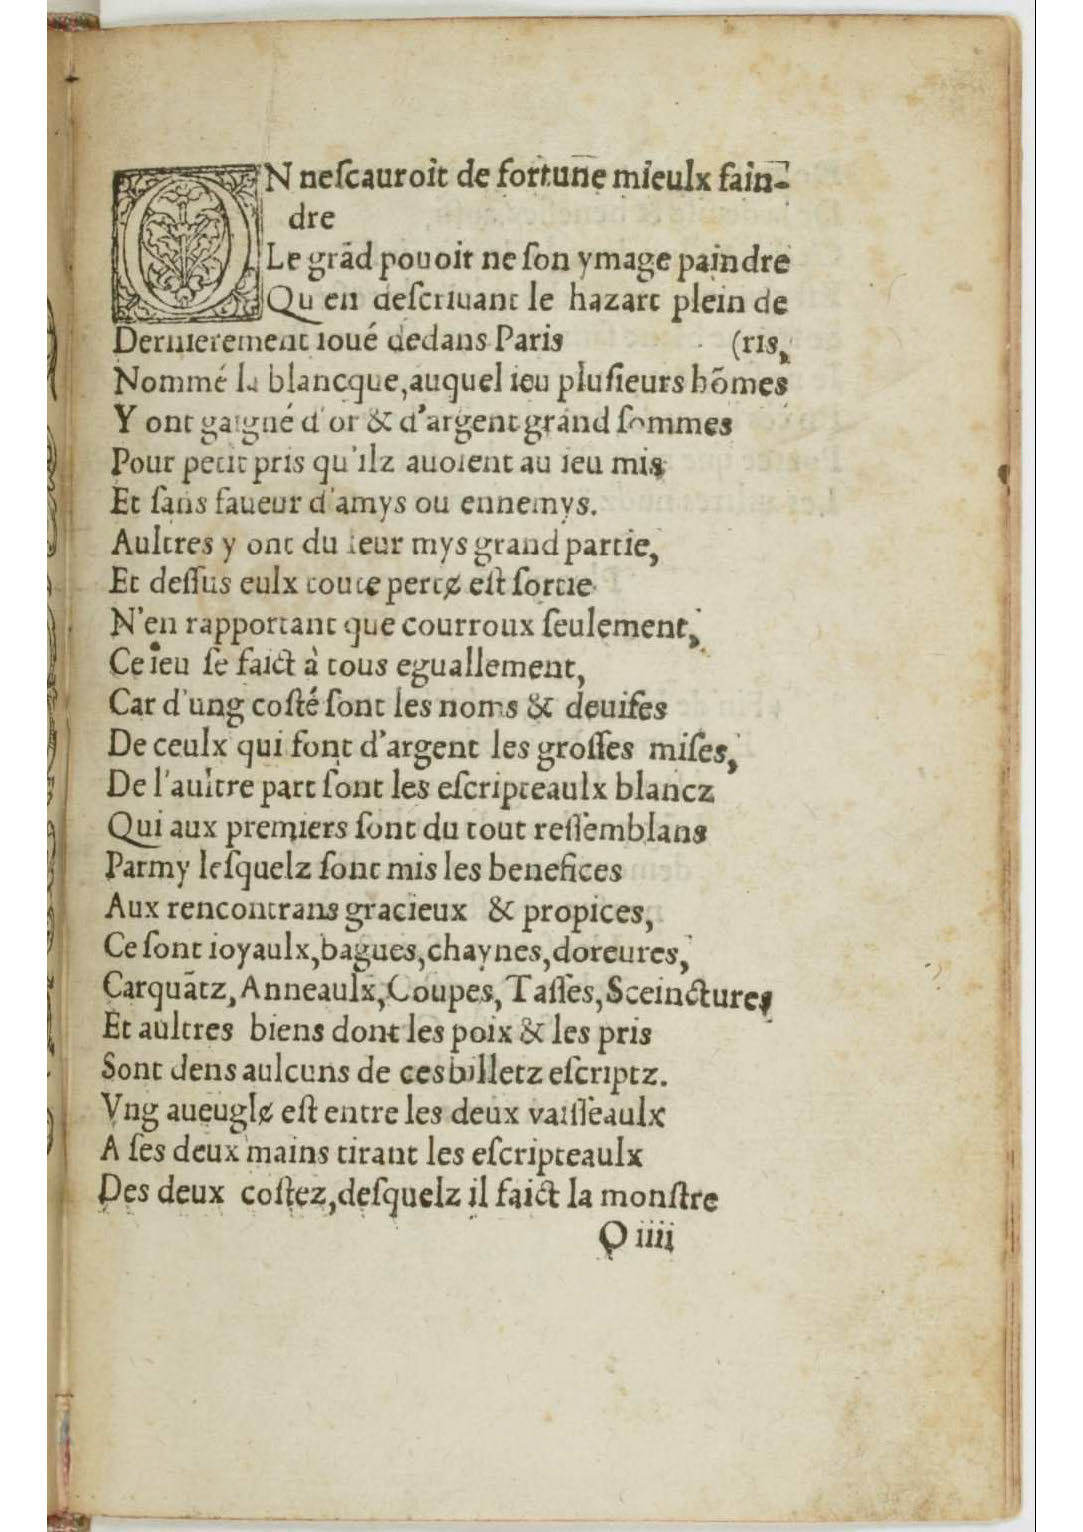 ON neſcauroit de fortune mieulx fain-
dre
Le grãd pouoir ne ſon ymage paindre
Qu en deſcriuant le hazart plein de
Dernierement ioué dedans Paris (ris,
Nommé la blancque,auquel ieu pluſieurs hõmes
Y ont gaigné d'or & d'argent grand ſommes
Pour petit pris qu'ilz auoient au ieu mis
Et ſans faueur d'amys ou ennemys.
Aultres y ont du leur mys grand partie,
Et deſſus eulx toute pertɇ eſt ſortie
N'en rapportant que courroux ſeulement,
Ce ieu ſe faict à tous eguallement,
Car d'ung coſté ſont les noms & deuiſes
De ceulx qui font d'argent les groſſes miſes,
De l'aultre part ſont les eſcripteaulx blancz
Qui aux premiers ſont du tout reſſemblans
Parmy leſquelz ſont mis les benefices
Aux rencontrans gracieux & propices,
Ce ſont ioyaulx,bagues,chaynes,doreures,
Carquãtz,Anneaulx,Coupes,Taſſes,Sceinctures
Et aultres biens dont les poix & les pris
Sont dens aulcuns de ces billetz eſcriptz.
Vng aueuglɇ eſt entre les deux vaiſſeaulx
A ſes deux mains tirant les eſcripteaulx
Des deux coſtez,deſquelz il faict la monſtre
Q iiii